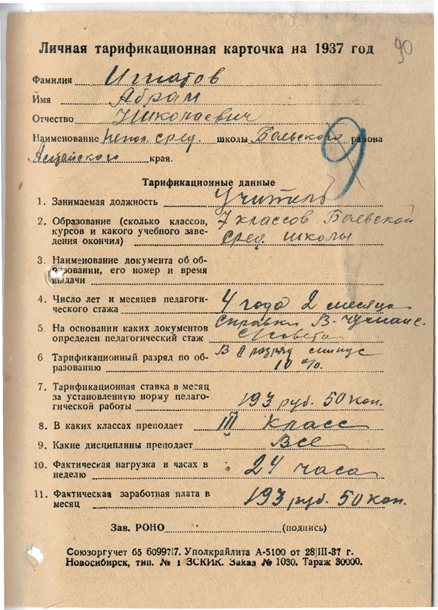 90
Личная тарификационная карточка на 1937 год
Фамилия Игнатов
Имя Абрам
Отчество Николаевич
Наименование непол. сред. школы Баевского района
Алтайского края.
9
Тарификационные данные
1. Занимаемая должность учитель
2. Образование (сколько классов, 7 классов Баевской
курсов и какого учебного заве- сред. школы
дения окончил)
3. Наименование документа об об-
разовании, его номер и время
выдачи
4. Число лет и месяцев педагоги- 4 года 2 месяца
ческого стажа
5. На основании каких документов справки В-
определен педагогический стаж с/совета
6. Тарификационный разряд по об- В II разряд минус
разованию 10 %.
7. Тарификационная ставка в месяц
за установленную норму педаго-
гической работы 193 руб. 50 коп.
8. В каких классах преподает III класс
9. Какие дисциплины преподает Все
10. Фактическая нагрузка в часах в 24 часа
неделю
11. Фактическая заработная плата в 193 руб. 50 коп.
месяц
Зав. РОНО (подпись)
Союзоргучет 65 Уполкрайлита А-5100 от 28|III-37 г.
Новосибирск, тип. № 1 ЗСКИК. Заказ № 1030. Тираж 30000.